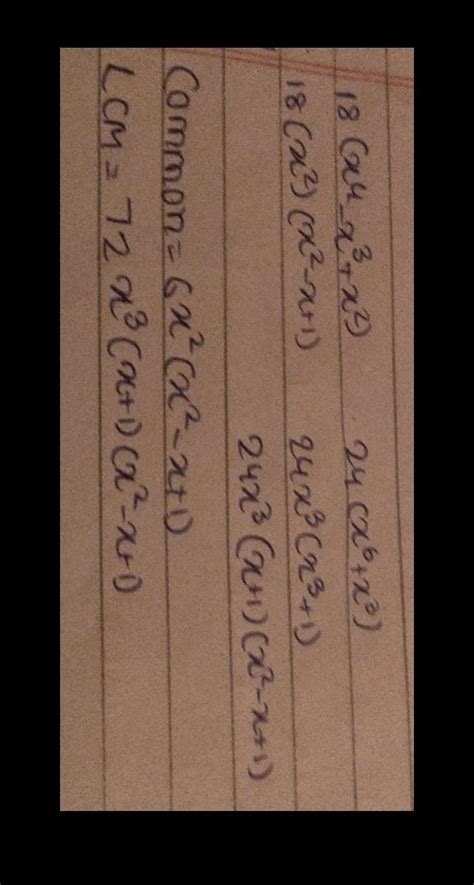 18 (x⁴ - x³ + x²) 24 (x⁶ + x³)
18 (x²) (x² - x + 1) 24x³ (x³ + 1)
24x³ (x+1) (x² - x + 1)
Common = 6x² (x² - x + 1)
LCM = 72 x³ (x+1) (x² - x + 1)